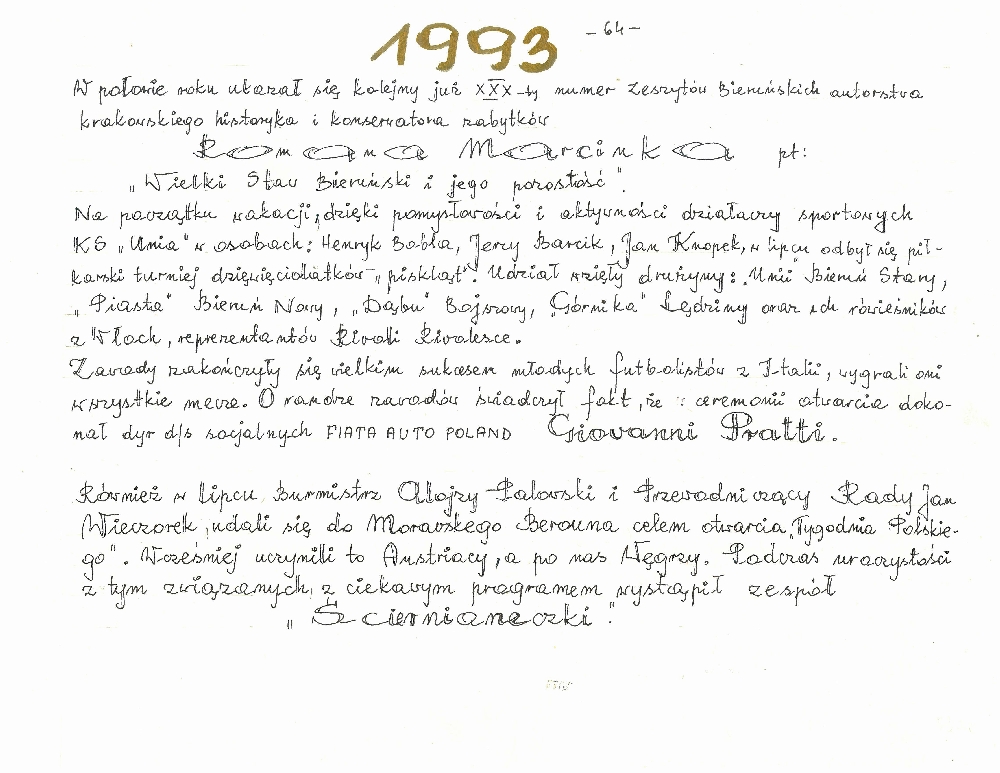 1993 -64-
W połowie roku ukazał się kolejny już XXX-ty numer Zeszytów Bieruńskich autorstwa
krakowskiego historyka i konserwatora zabytków
Romana Marcinka pt:
„Wielki Staw Bieruński i jego pozostość".
Na początku wakacji, dzięki pomysłowości i aktywności działaczy sportowych
KS „Unia" w osobach: Henryk Bobla, Jerzy Barcik, Jan Knopek, w lipcu odbył się pił-
karski turniej dziewięciolatków „piskląt". Udział wzięły drużyny: Unii Bieruń Stary,
„Piasta" Bieruń Nowy, „Dąbu" Bojszowy, „Górnika" Lędziny oraz ich rówieśników
z Włoch, reprezentantów Rivoli Rivalesce.
Zawody zakończyły się wielkim sukcesem młodych futbolistów z Italii, wygrali oni
wszystkie mecze. O randze zawodów świadczył fakt, że ceremonii otwarcia doko-
nał dyr d/s socjalnych FIATA AUTO POLAND Giovanni Pratti.
Również w lipcu Burmistrz Alojzy Palowski i Przewodniczący Rady Jan
Wieczorek, udali się do Moravskego Berouna celem otwarcia „Tygodnia Polskie-
go". Wcześniej uczynili to Austriacy, a po nas Węgrzy. Podczas uroczystości
z tym związanych, z ciekawym programem wystąpił zespół
„Ściernianeczki".